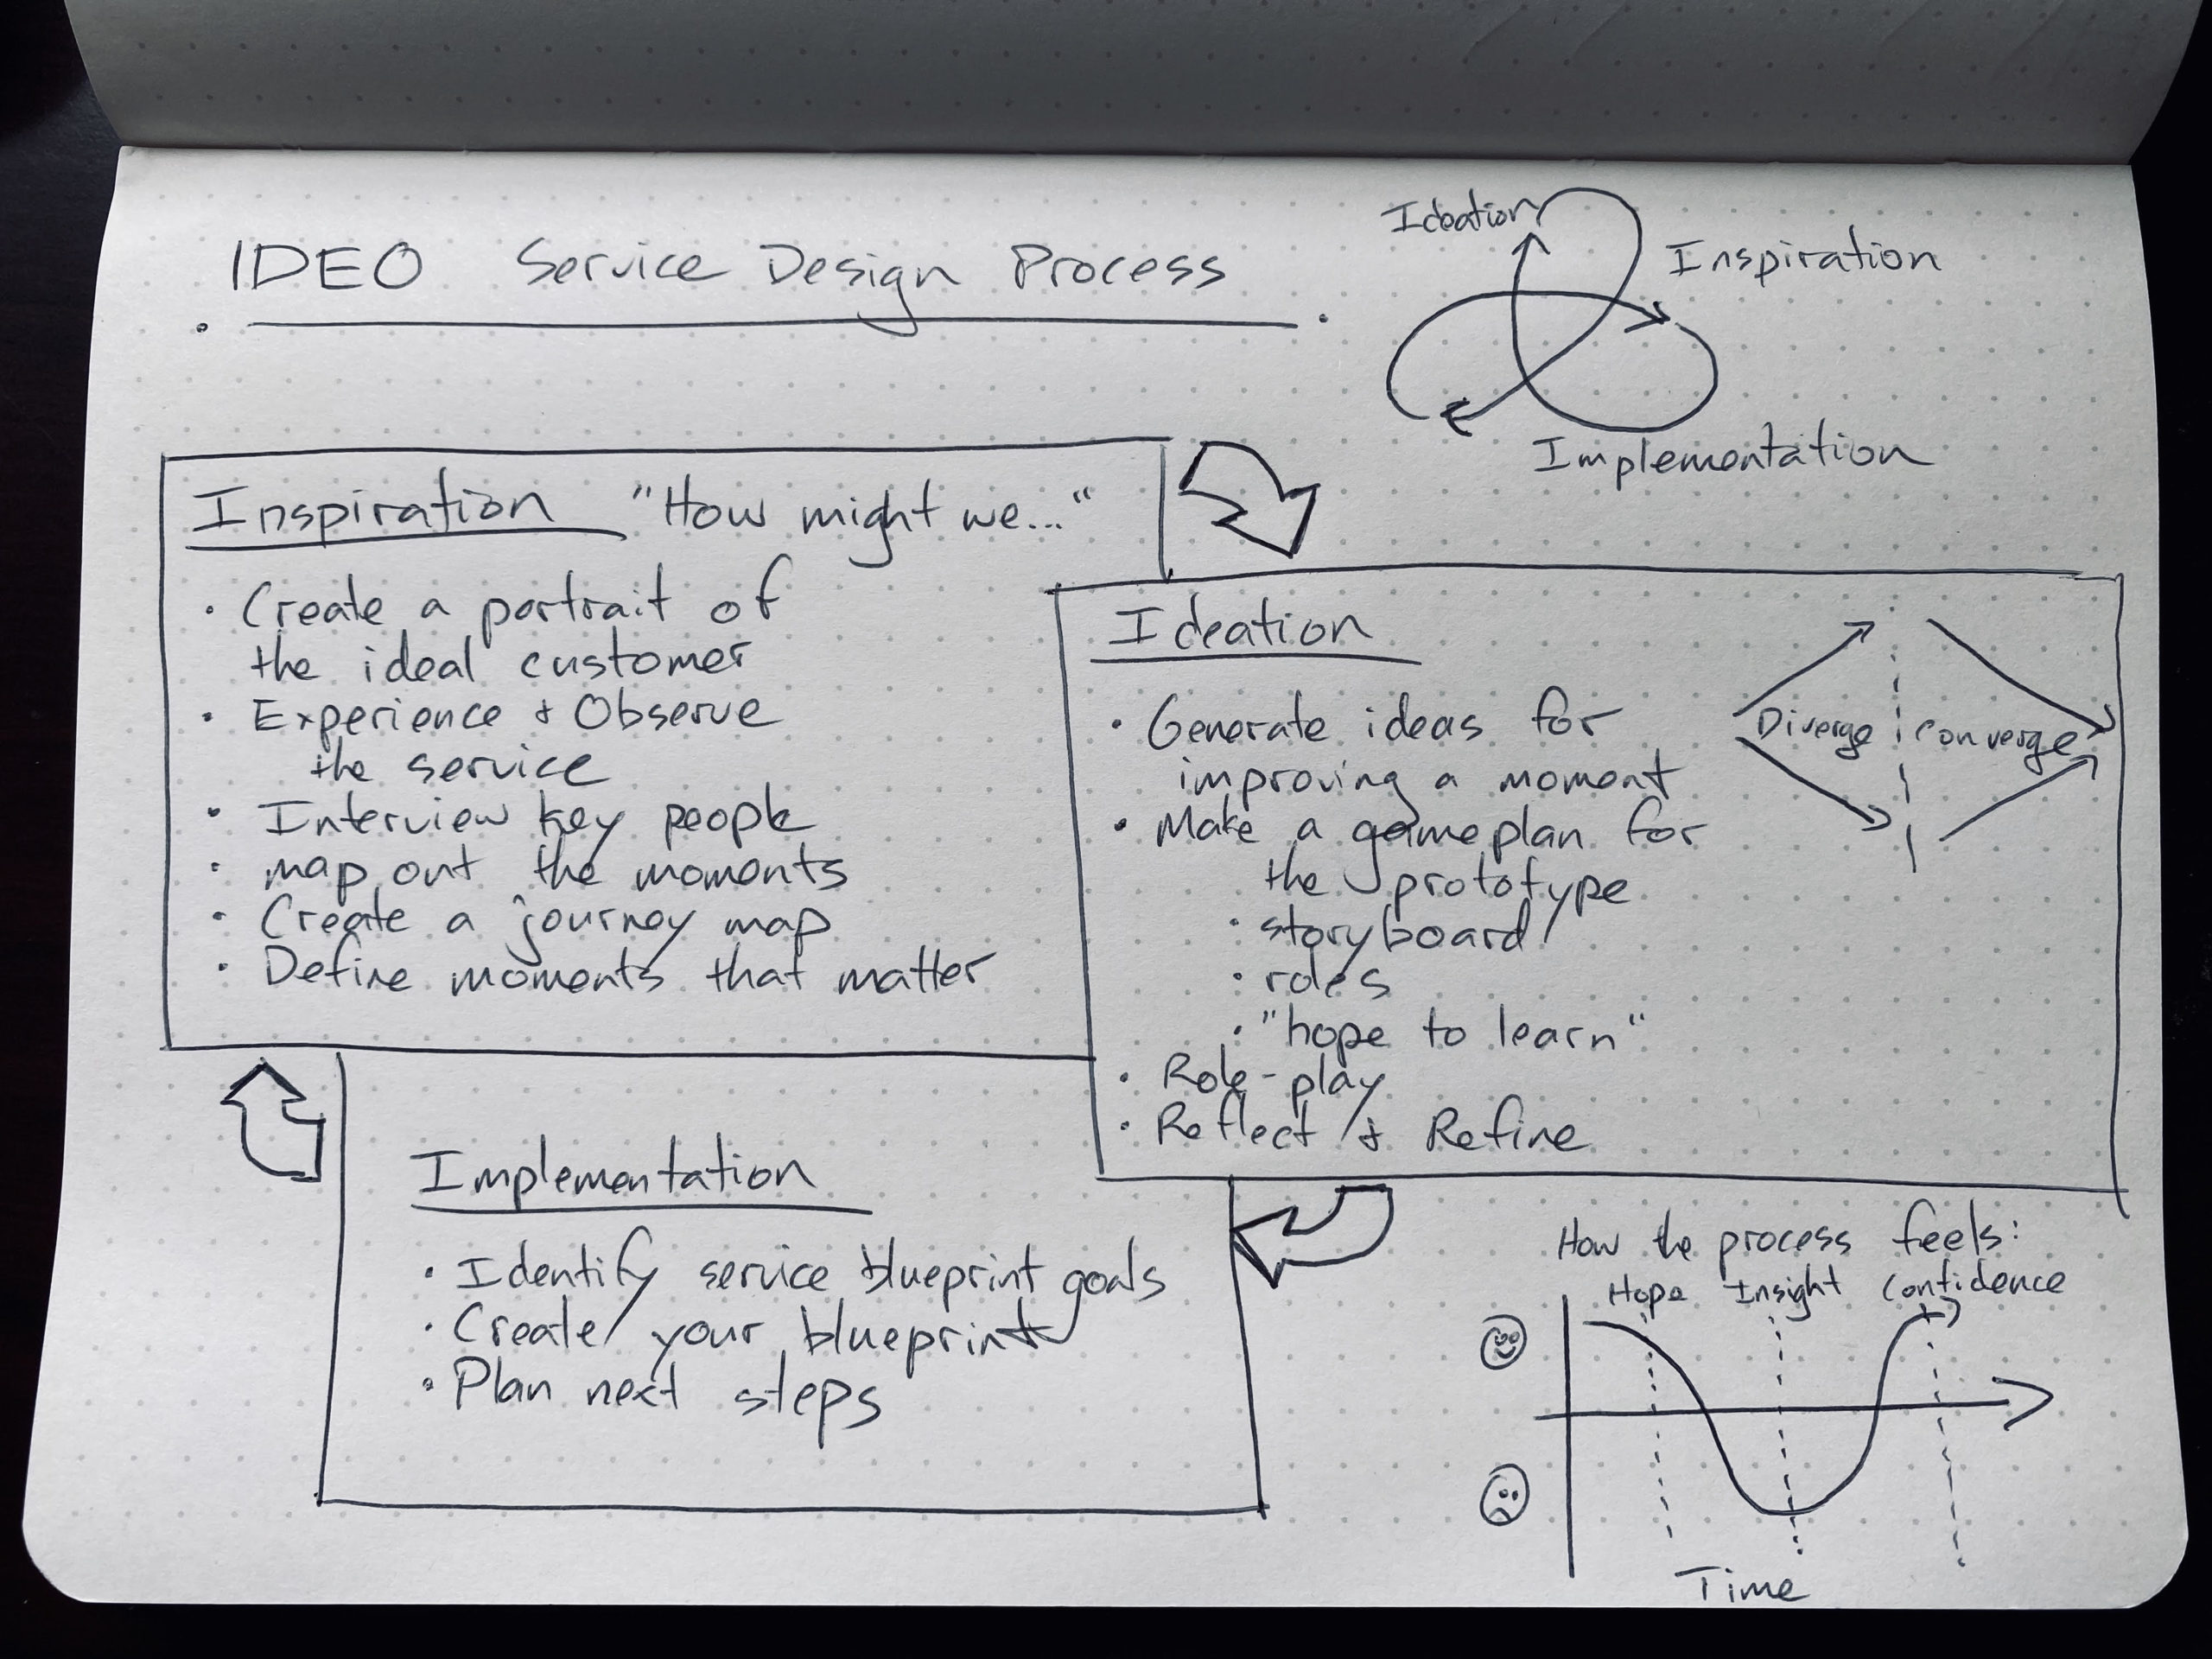 IDEO Service Design Process
Ideation
Inspiration
Implementation
Inspiration "How might we..."
• Create a portrait of
the ideal customer
• Experience + Observe
the service
• Interview key people
• map out the moments
• Create a journey map
• Define moments that matter
Ideation
• Generate ideas for
improving a moment
• Make a gameplan for
the prototype
• storyboard
• roles
• "hope to learn"
• Role-play
• Reflect + Refine
Diverge
Converge
Implementation
• Identify service blueprint goals
• Create your blueprint
• Plan next steps
How the process feels:
Hope Insight Confidence
Time